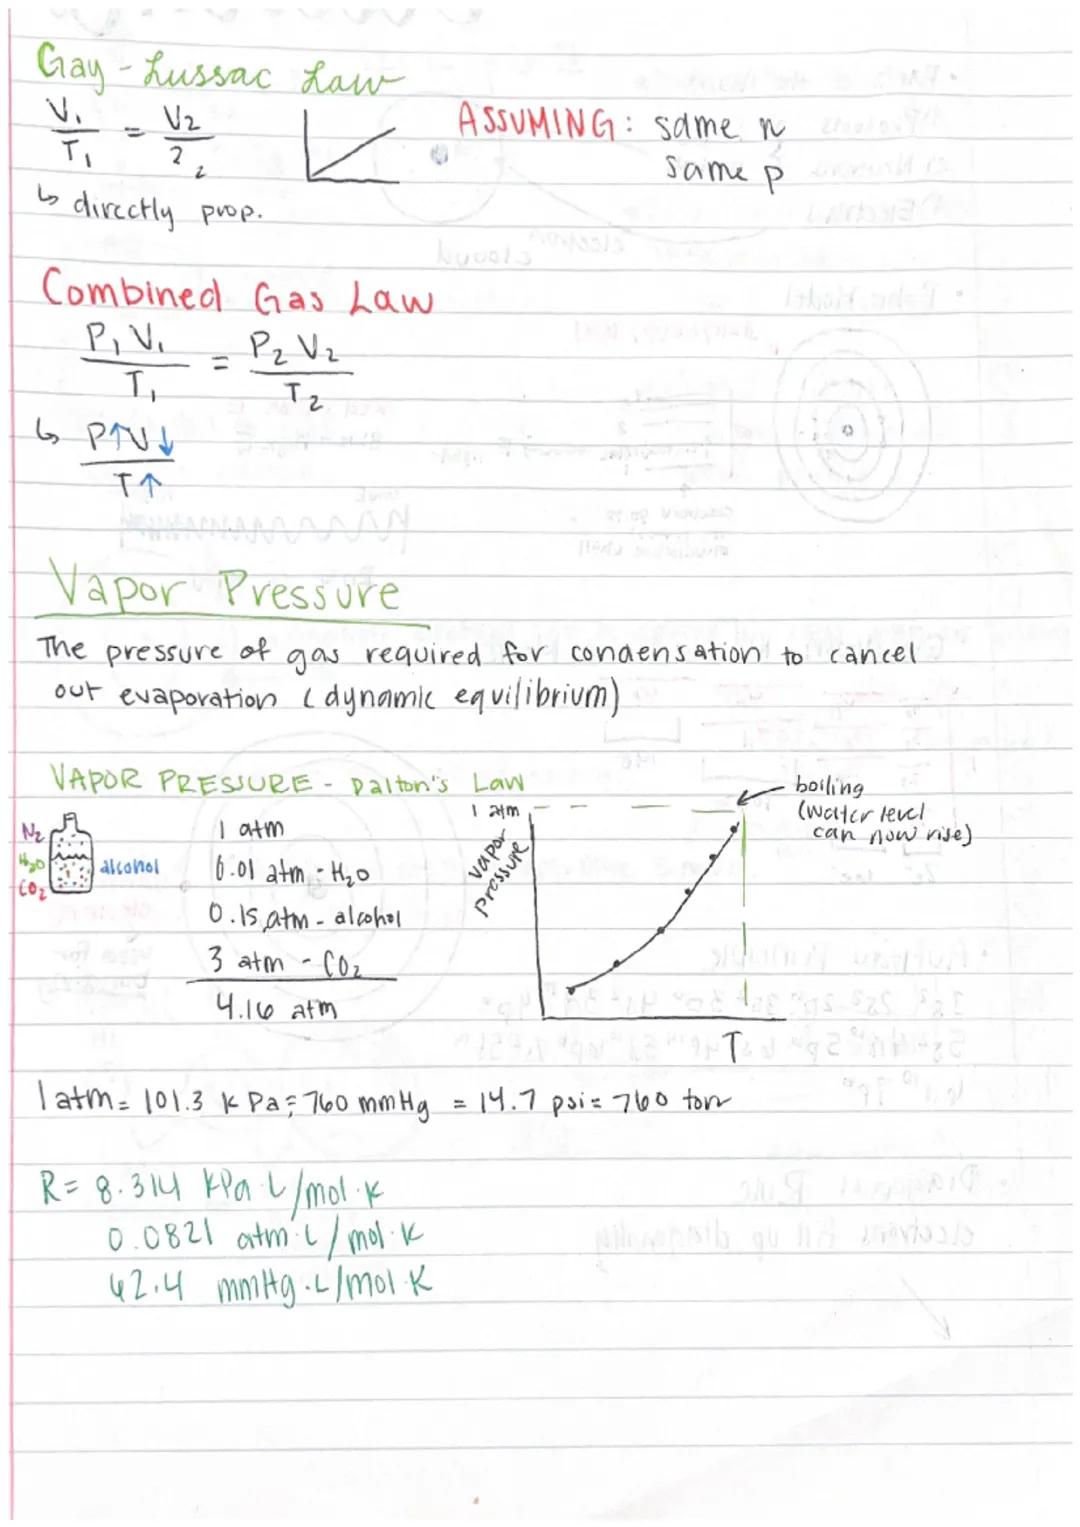 Gay-Lussac Law
V1/T1 = V2/2 2
ASSUMING: same n
same p
↳ directly prop.
Combined Gas Law
P1 V1/T1 = P2 V2/T2
↳ P↑V↓/T↑
Vapor Pressure
The pressure of gas required for condensation to cancel
out evaporation (dynamic equilibrium)
VAPOR PRESSURE - Dalton's Law
N2
H2O
CO2
alcohol
1 atm
0.01 atm - H2O
0.15 atm - alcohol
3 atm - CO2
4.16 atm
1 atm
vapor
pressure
boiling
(water level
can now rise)
T
1 atm = 101.3 kPa = 760 mmHg = 14.7 psi = 760 torr
R = 8.314 kPa·L/mol·K
0.0821 atm·L/mol·K
62.4 mmHg·L/mol·K